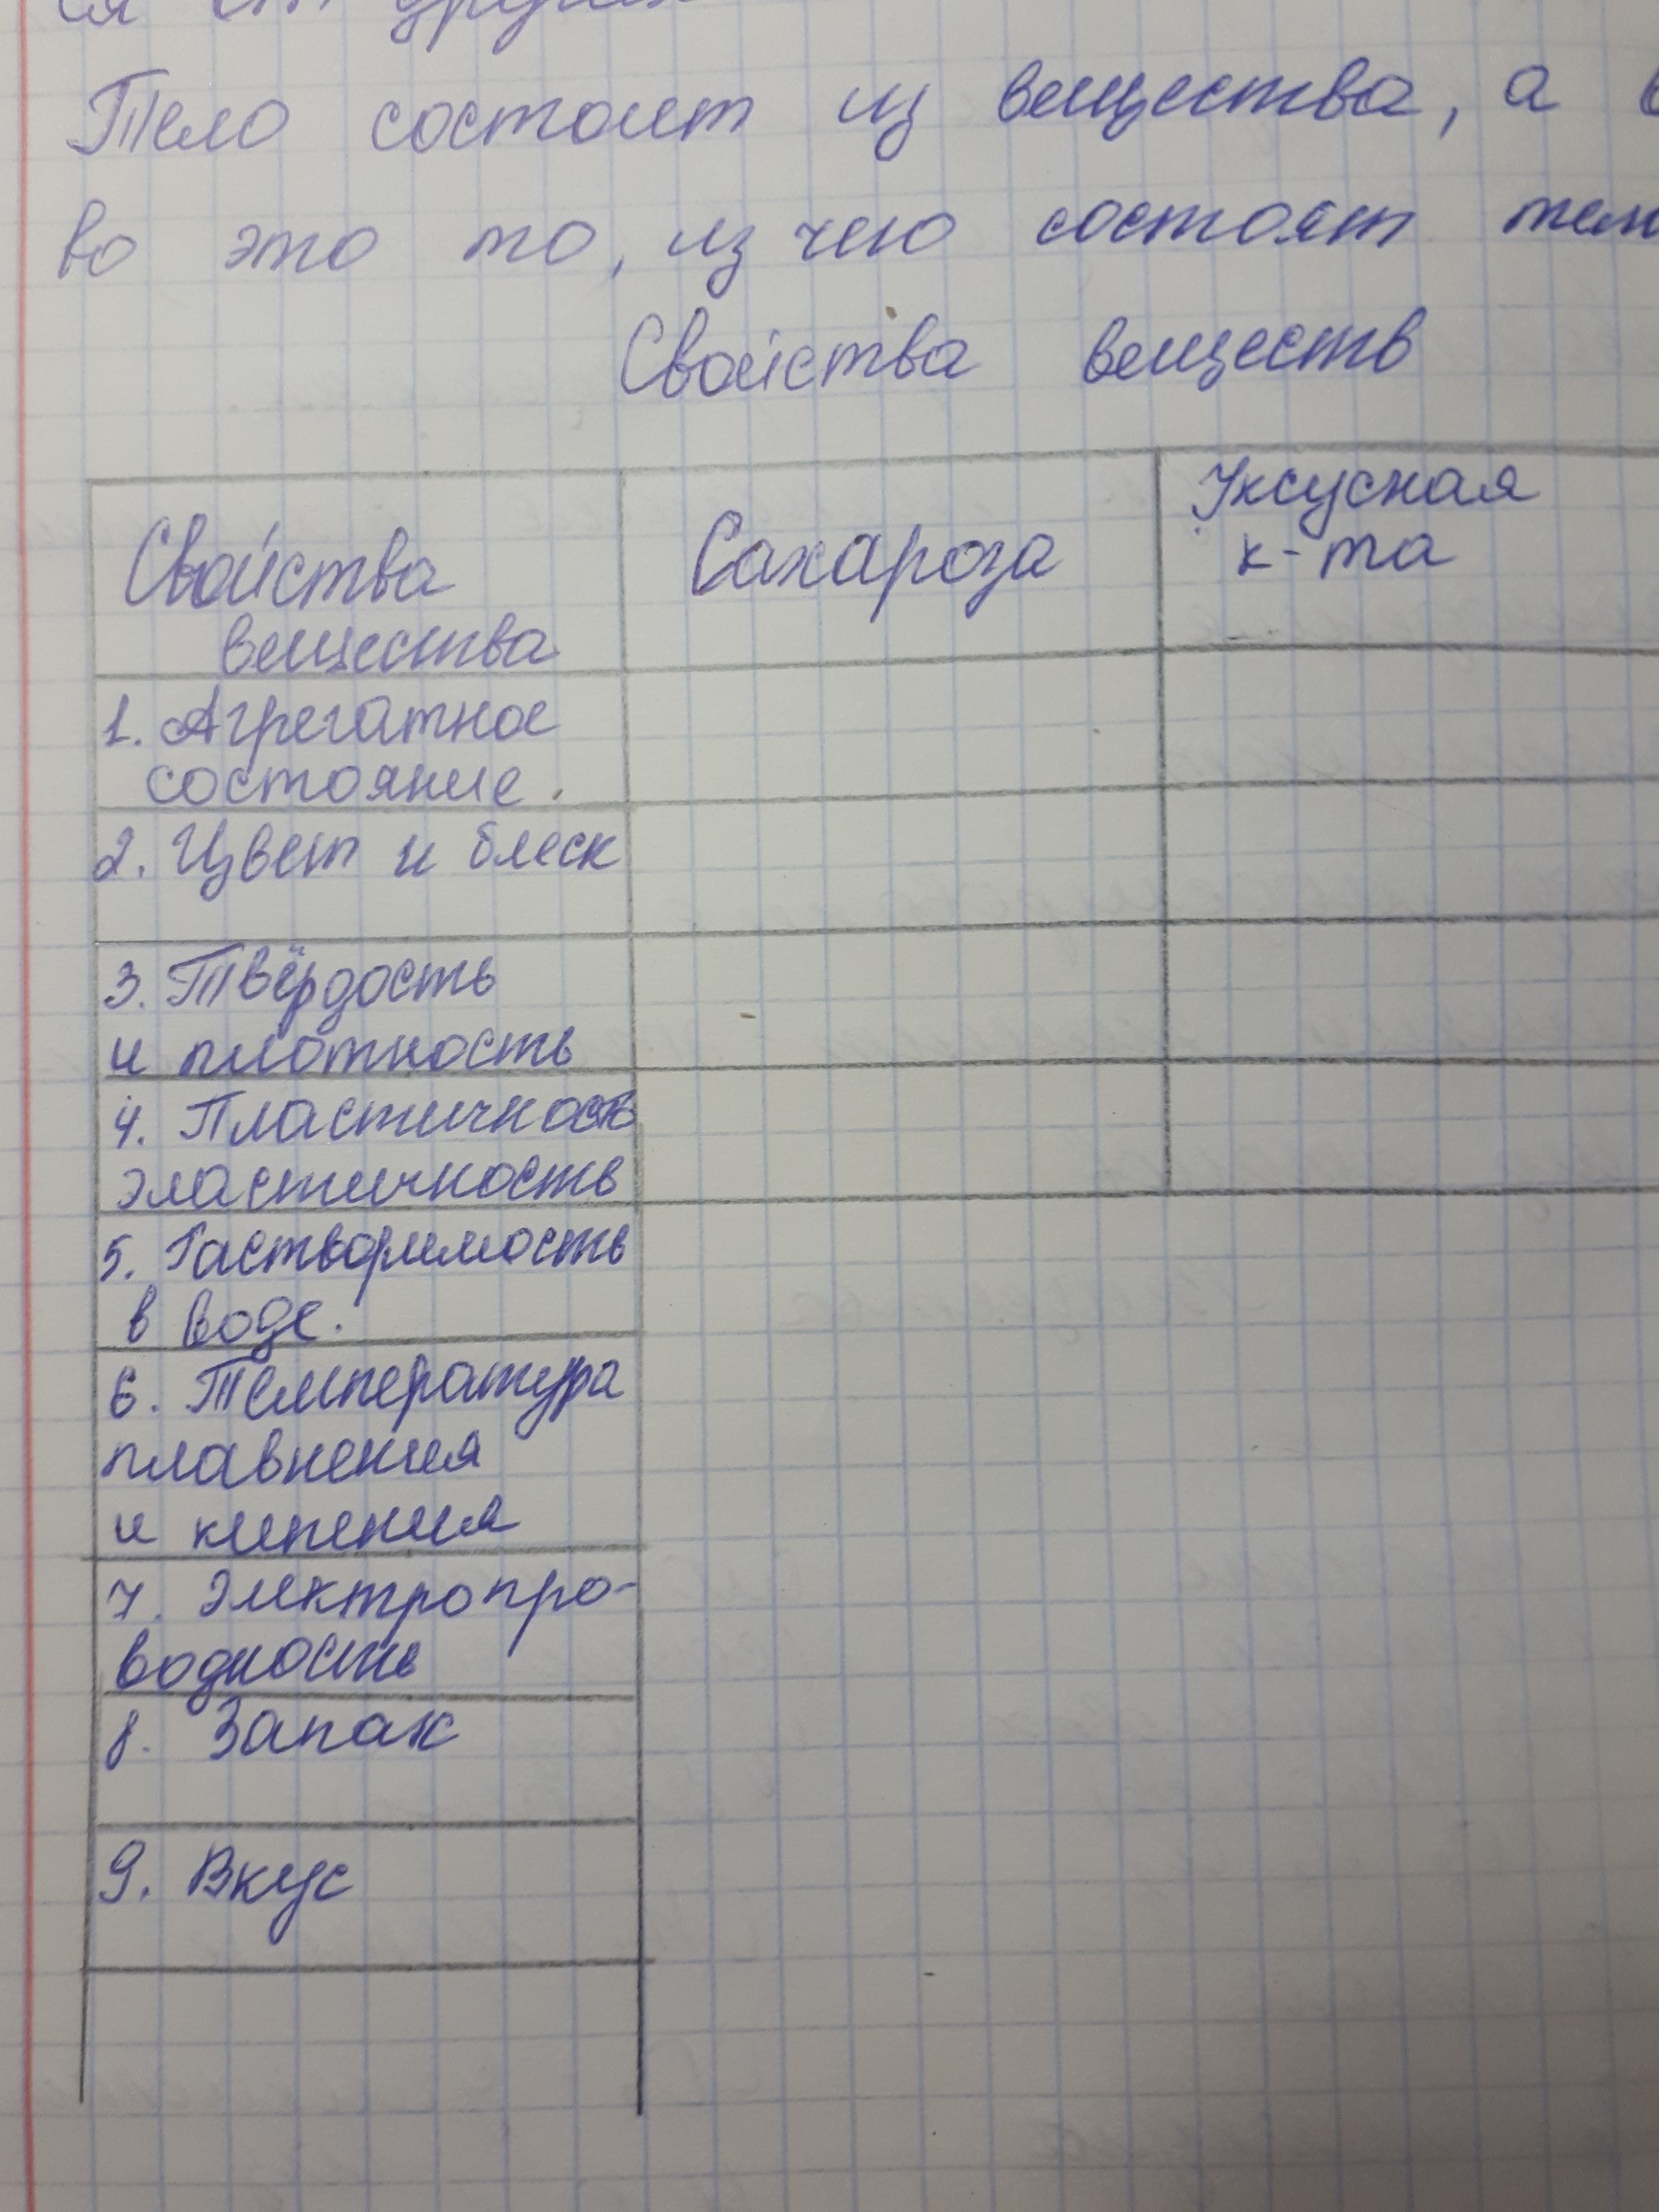 Тело состоит из вещества, а в
во это то, из чего состоят тела
Свойства веществ
Свойства
вещества
Сахароза
Уксусная
к-та
1. Агрегатное
состояние.
2. Цвет и блеск
3. Твёрдость
и плотность
4. Пластичность
эластичность
5. Растворимость
в воде.
6. Температура
плавнения
и кипения
7. Электропро-
водность
8. Запак
9. Вкус